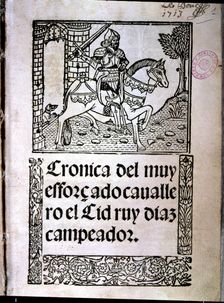 1713
Cronica del muy
esforçado caualle
ro el Cid ruy diaz
campeador.